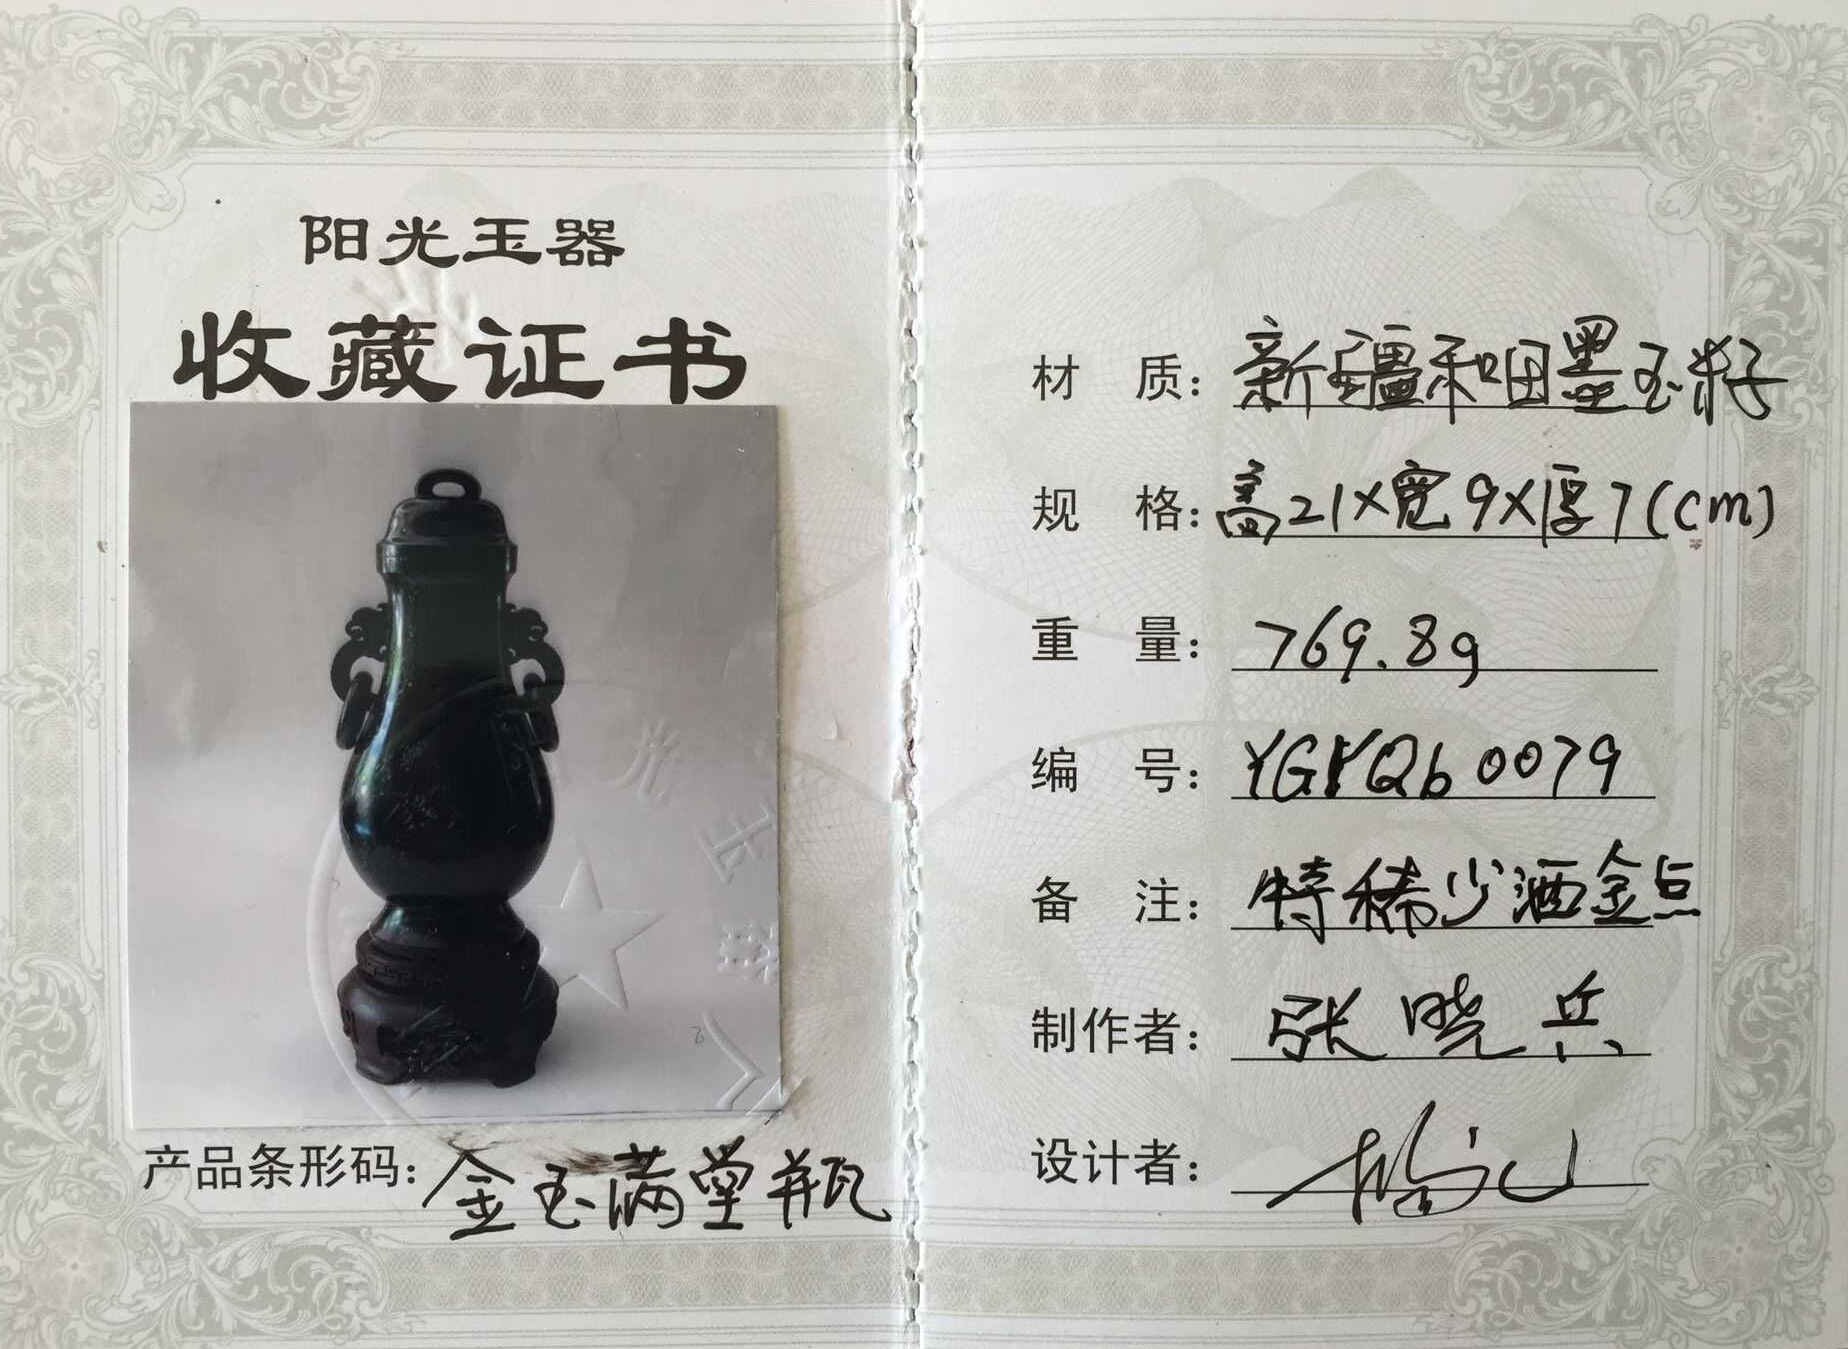 阳光玉器
收藏证书
产品条形码：金玉满堂瓶
材 质：新疆和田墨玉籽
规 格：高21×宽9×厚7(cm)
重 量：769.8g
编 号：YGYQb0079
备 注：特稀少洒金点
制作者：张晓兵
设计者：